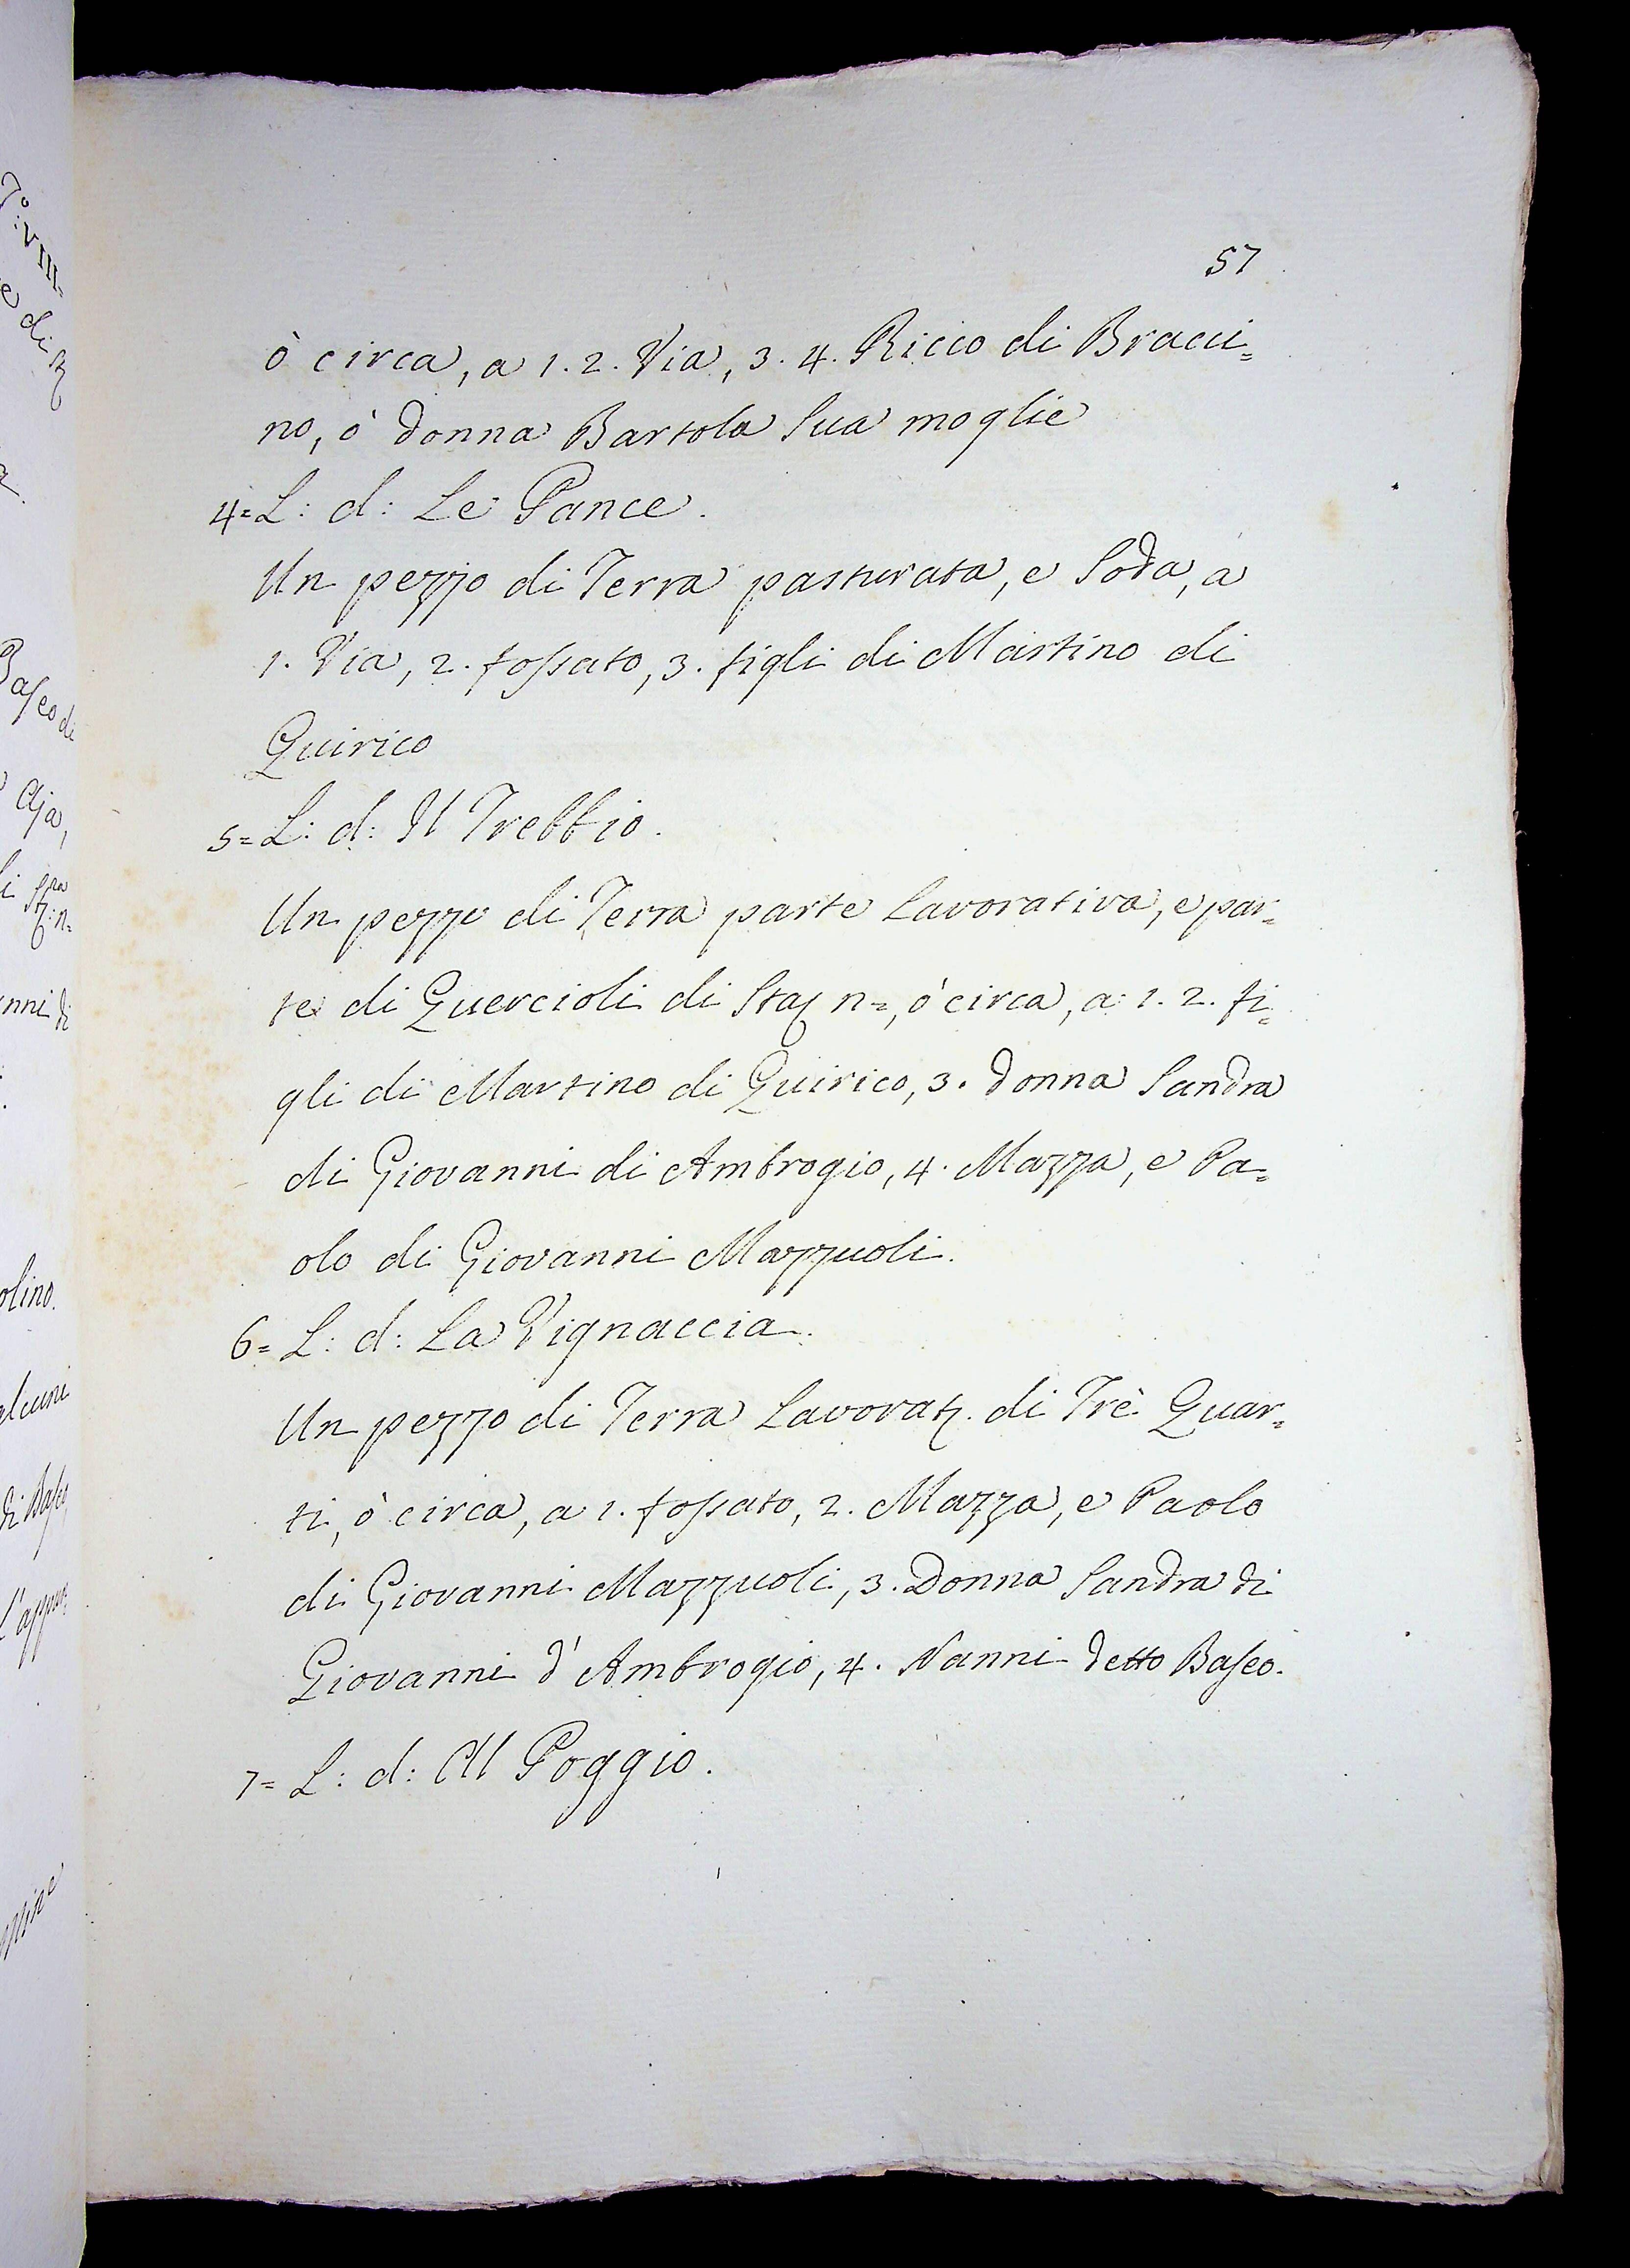 57
ò circa, a 1. 2. Via, 3. 4. Ricco di Bracci=
no, ò donna Bartola Sua moglie
4= L: d: Le Pance.
Un pezzo di Terra pasturata, e Soda, à
1. Via, 2. fossato, 3. figli di Martino di
Quirico
5= L: d: Il Trebbio.
Un pezzo di Terra parte Lavorativa, e par=
te di Quercioli di Staj n=, ò circa, a 1. 2. fi=
gli di Martino di Quirico, 3. donna Sandra
di Giovanni di Ambrogio, 4. Mazza, e Pa=
olo di Giovanni Mazzuoli.
6= L: d: La Vignaccia.
Un pezzo di Terra Lavorat. di Trè Quar=
ti, ò circa, a 1. fossato, 2. Mazza, e Paolo
di Giovanni Mazzuoli, 3. Donna Sandra di
Giovanni d'Ambrogio, 4. Nanni detto Baseo.
7= L: d: Al Poggio.